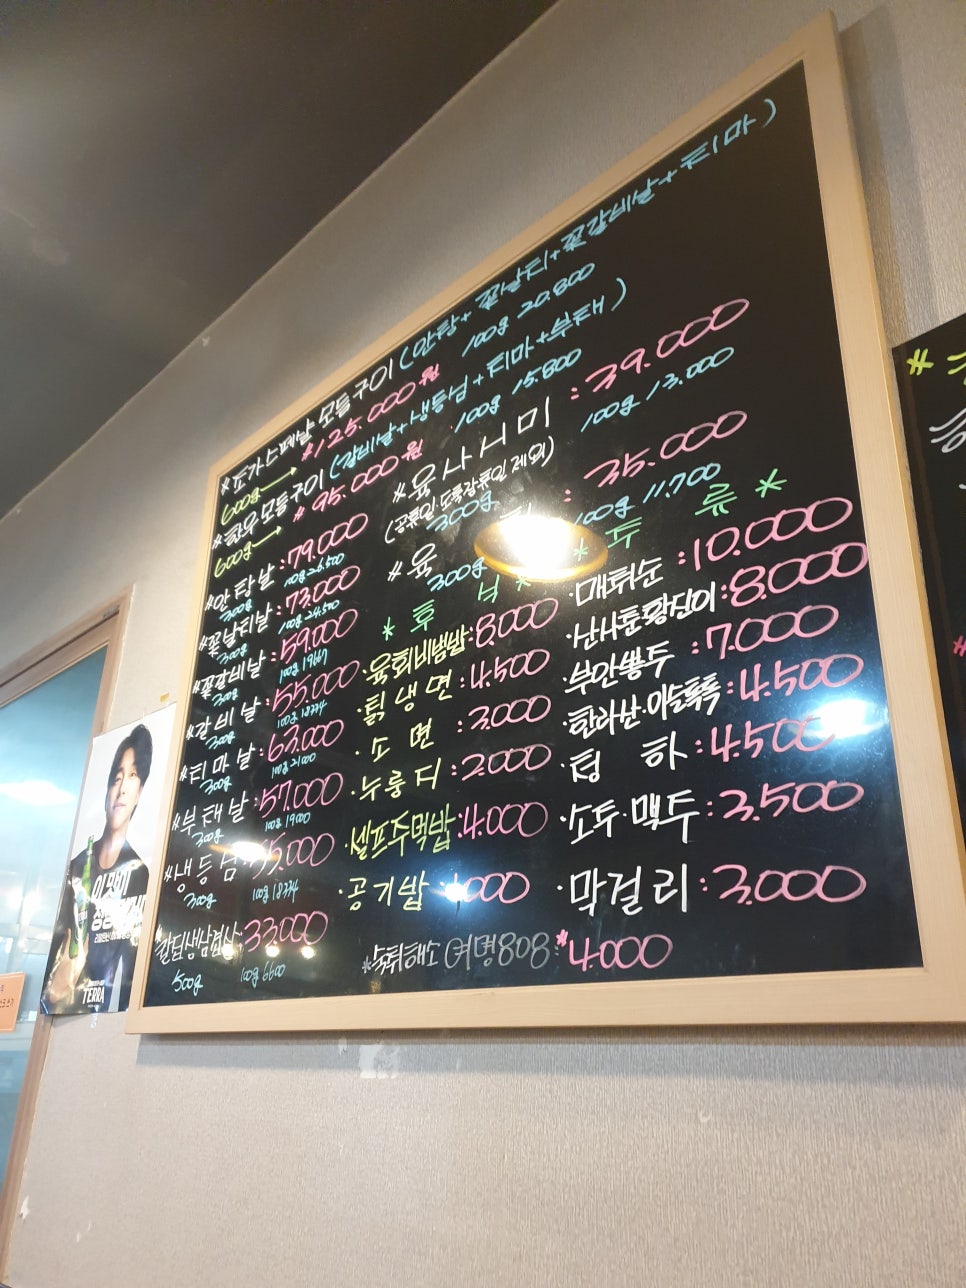 *조가스페샬 모듬구이 (안창+꽃살치+꽃갈비살+치마)
600g → *125.000원 100g 20.800
*한우모듬구이 (갈비살+생등심+치마+부채)
600g → *95.000원 100g 15.800
*안창살:79.000
300g 100g 26.500
*꽃살치살:73.000
300g 100g 24.500
*꽃갈비살:59.000
300g 100g 19667
*갈비살:55.000
300g 100g 18334
*치마살:63.000
300g 100g 21000
*부채살:57.000
300g 100g 19000
*생등심:55.000
300g 100g 18334
:33.000
500g 100g 6600
*육사시미:39.000
(공휴일.도축장휴일 제외)
300g 100g 13.000
*육 :35.000
300g 100g 11.700
*후 식*
·육회비빔밥:8.000
·칡냉면:4.500
·소면:3.000
·누룽지:2.000
·셀프주먹밥:4.000
·공기밥
*주 류*
·매취순:10.000
·산사춘황진이:8.000
·부안뽕주:7.000
·한라산·이슬톡톡:4.500
·청하:4.500
·소주·맥주:3.500
·막걸리:3.000
*숙취해소(여명808:*4.000
TERRA